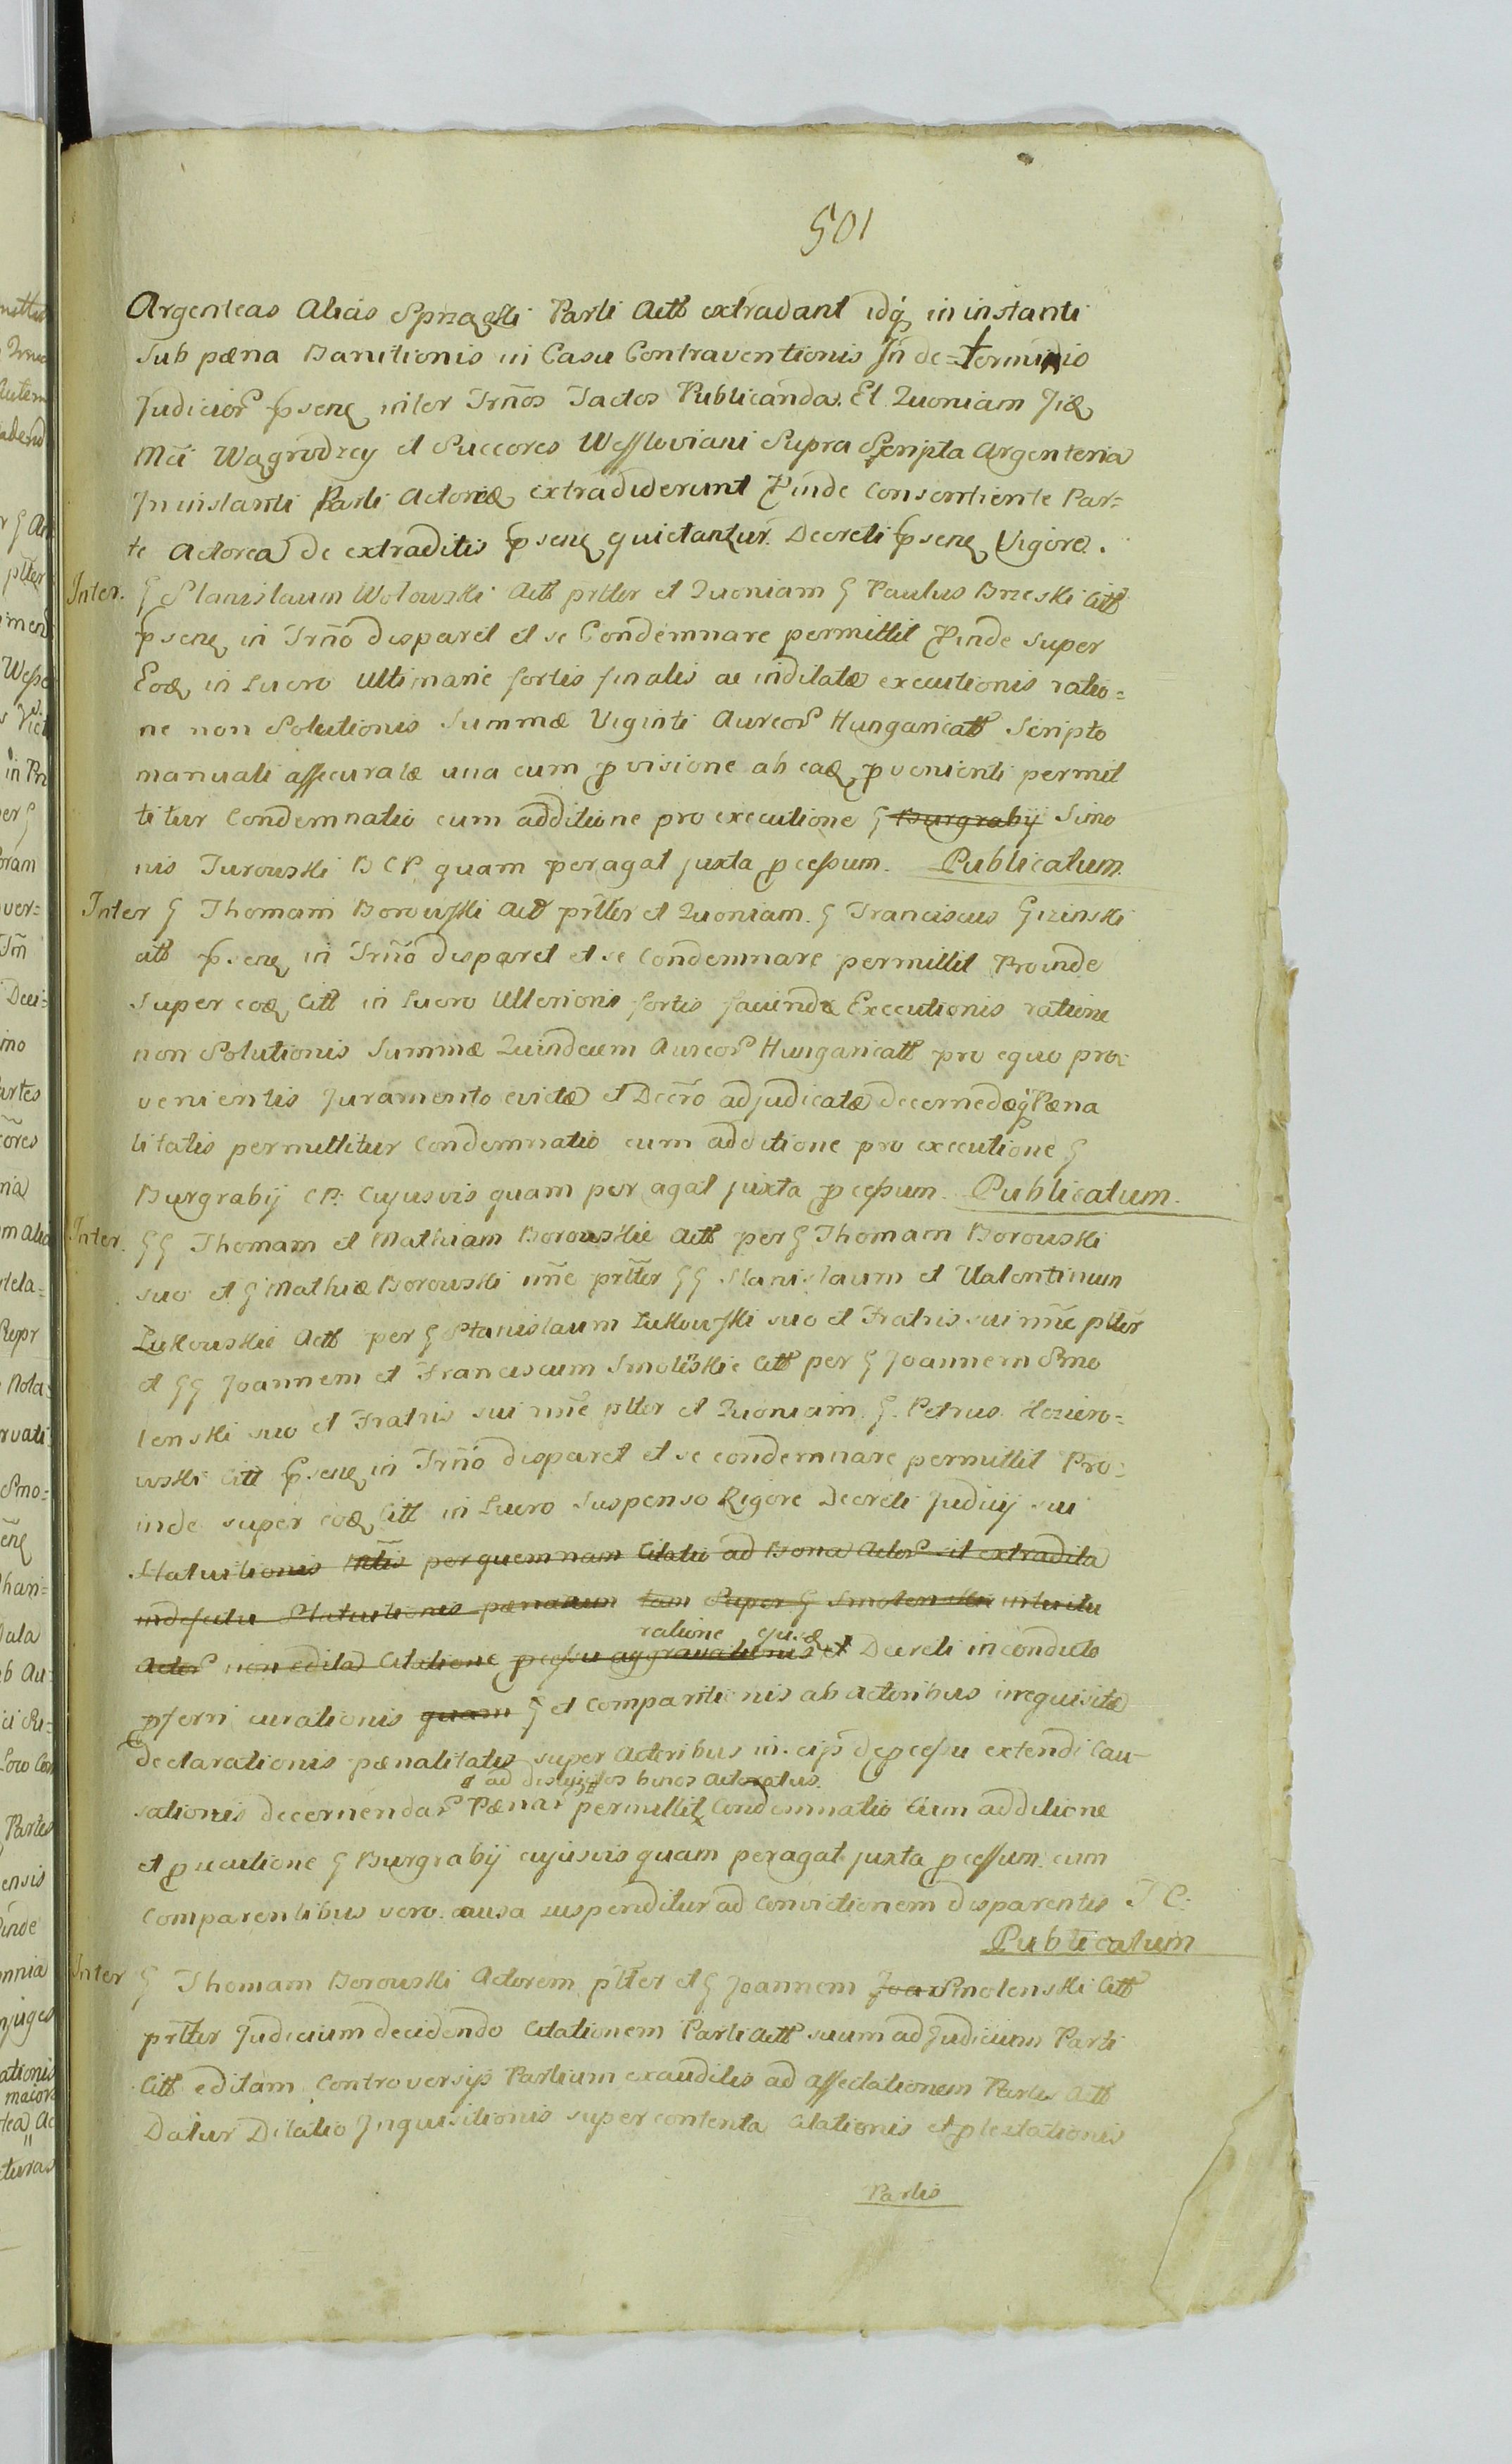 501
Argenteas Alias Sprzączki Parti Actt extradant idq in instanti
sub pæna Banitionis in Casu Contraventionis In de=terminio
Judicior psenę inter Trnos Tactos Publicanda. Et Quoniam
Mci Wagrodzcy et Succores Wessloviani Supra Scripta Argenteria
In instanti Parti Actoreæ extradiderunt Pinde Consentiente Par=
te Actorea de extraditis psenę quietantur Decreti psenę Vigore.
Inter. G Stanislaum Wolowski Actt prtter et Quoniam G Paulus Brzeski Citt
psenę in Trno disparet et se Condemnare permittit Pinde super
Eoę in Lucro Ultimarie sortis finalis ac indilatæ executionis ratio=
ne non Solutionis Summæ Viginti Aureor Hungaricatt Scripto
manuali assecuratæ una cum pvisione ab eaę pvenienti permit
titur Condemnatio cum additione pro executione G Burgrabij Simo
nis Turowski B C P. quam peragat juxta pcessum. Publicatum.
Inter G Thomam Borowski Actt prtter et Quoniam. G Franciscus Gizinski
citt psenę in Trno disparet et se Condemnare permittit Proinde
super eoę Citt in Lucro Ulterioris sortis faciendæ Executionis ratione
non Solutionis Summæ Quindecim Aureor Hungaricatt pro equo pro=
venientis Juramento evictæ et Decro adjudicatæ decernedæq Pæna
litatis permittitur Condemnatio cum additione pro executione G
Burgrabij CP. Cujusvis quam peragat juxta pcessum. Publicatum.
Inter. GG Thomam et Mathiam Borowskie Actt per G Thomam Borowski
suo et G Mathiæ Borowski nne prtter GG Stanislaum et Valentinum
Lukowskie Actt per G Stanislaum Lukowski suo et Fratris sui nne ptter
et GG Joannem et Franciscum Smolskie Citt per G Joannem Smo
lenski suo et Fratris sui nne ptter et Quoniam G. Petrus
wski Citt psenę in Trno disparet et se condemnare permittit Pro=
inde super eoę Citt in Lucro Suspenso Rigore Decreti Judicij sui
Statuitionis per quemnam Citatio ad Bona Actor sit extradita
indefectu Statuitionis pænarum tam Super G Smolenski intuitu
ratione
Actor non edita Citatione pcessu aggravationis et Decreti inconducto
pferri curationis quam G et comparitionis ab Actoribus irrequisitæ
declarationis pænalitatis super Actoribus in. ejs de pcessu extendi Cau-
ad binos Actoratus.
sationis decernendar Pænar permittit Condemnatio Cum additione
et pxecutione G Burgrabij cujusvis quam peragat juxta pcessum. cum
Comparentibus vero. causa suspenditur ad Convictionem disparentis T C.
Publicatum
Inter G Thomam Borowski Actorem ptter et G Joannem Joa Smolenski Citt
prtter Judicium decidendo Citationem Parti Actt suum ad Judicium Parti
Citt editam Controversijs Partium exauditis ad affectationem Partis Actt
Datur Dilatio Inquisitionis super contenta Citationis et ptestationis
Partis